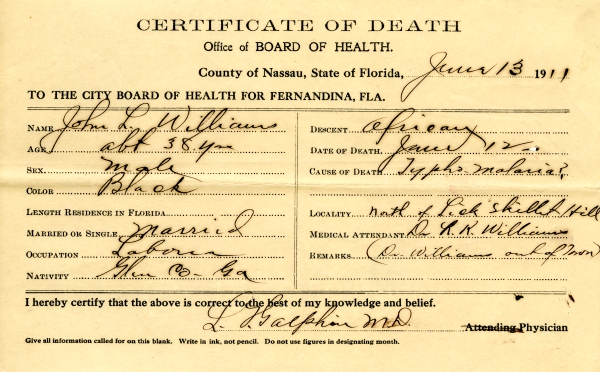 CERTIFICATE OF DEATH
Office of BOARD OF HEALTH.
County of Nassau, State of Florida, June 13 1911
TO THE CITY BOARD OF HEALTH FOR FERNANDINA, FLA.
NAME John L. Williams
AGE abt 38 yrs
SEX. Male
COLOR Black
LENGTH RESIDENCE IN FLORIDA
MARRIED OR SINGLE Married
OCCUPATION Laborer
NATIVITY Glen Co- Ga
DESCENT African
DATE OF DEATH. June 12
CAUSE OF DEATH Typho-malaria?
LOCALITY north of Lick Skillet Hill
MEDICAL ATTENDANT Dr. R. R. Williams
REMARKS (Dr. Williams out of Town)
I hereby certify that the above is correct to the best of my knowledge and belief.
L. Galphin M.D. Attending Physician
Give all information called for on this blank. Write in ink, not pencil. Do not use figures in designating month.